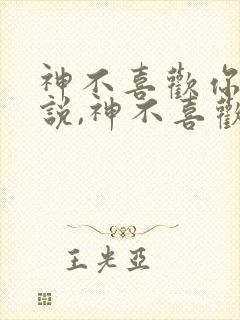 神不喜歡你
說,神不喜歡
王光亞